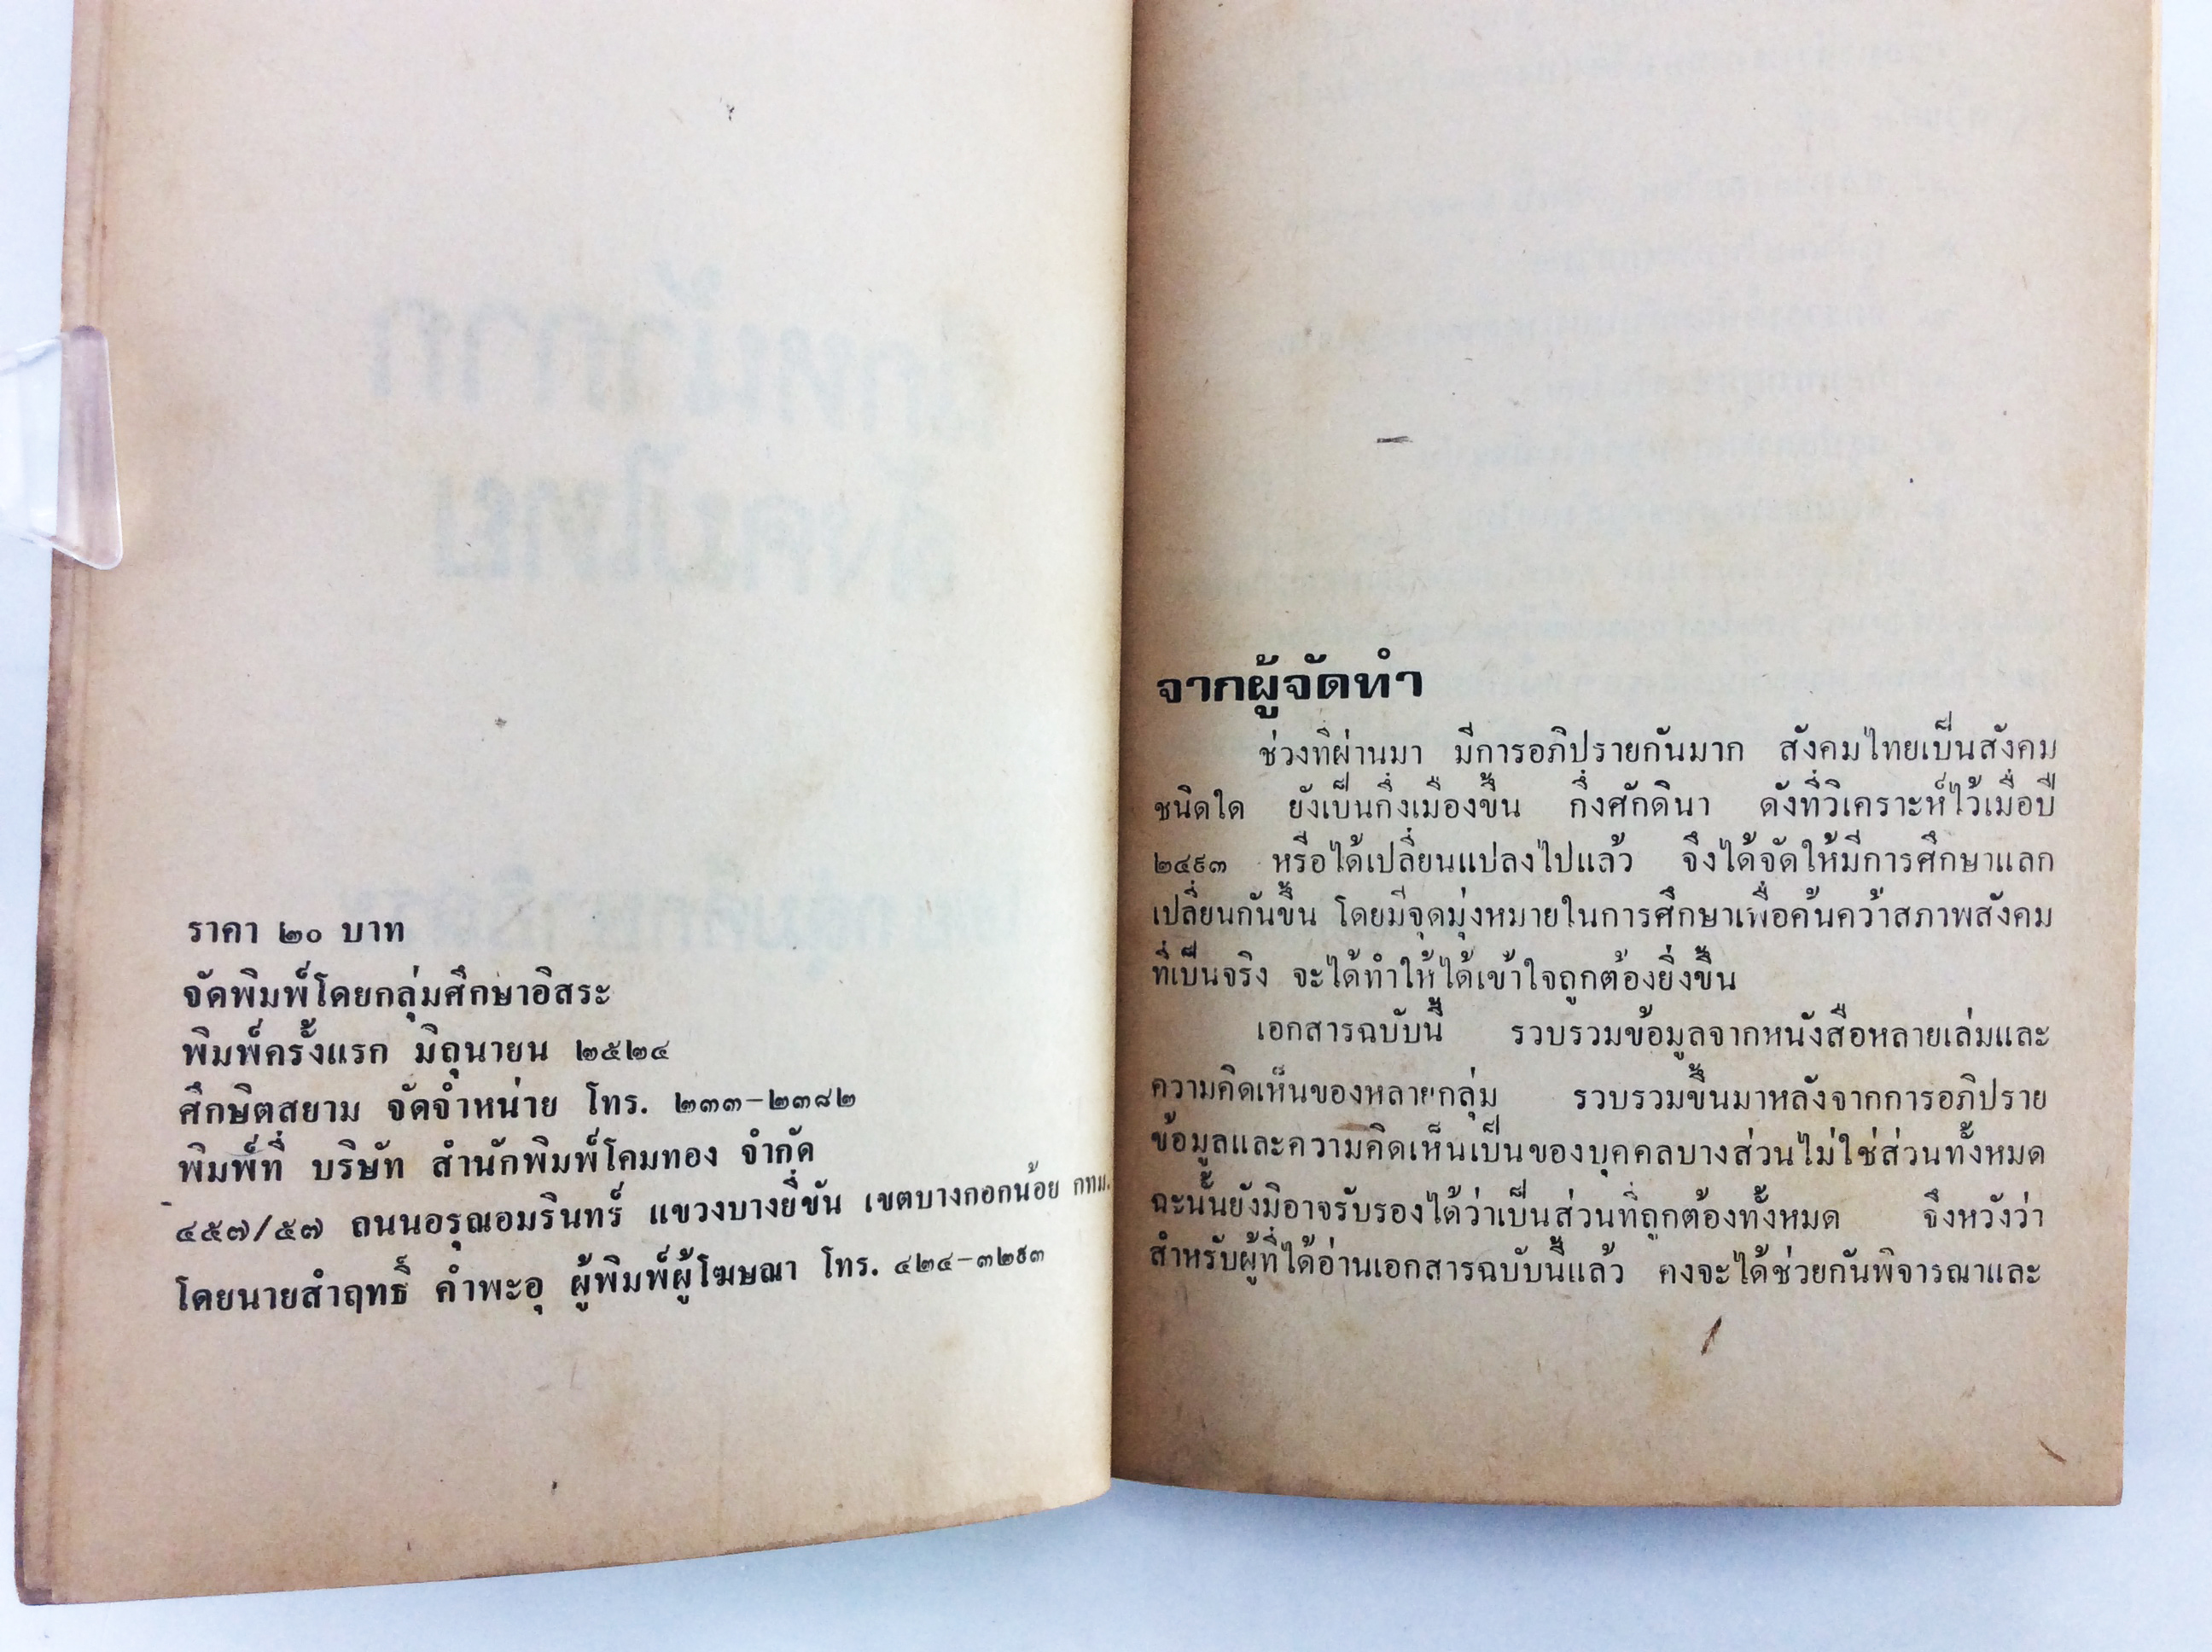 ราคา ๒๐ บาท
จัดพิมพ์โดยกลุ่มศึกษาอิสระ
พิมพ์ครั้งแรก มิถุนายน ๒๕๒๔
ศึกษิตสยาม จัดจำหน่าย โทร. ๒๓๓-๒๓๘๒
พิมพ์ที่ บริษัท สำนักพิมพ์โคมทอง จำกัด
๔๕๗/๕๗ ถนนอรุณอมรินทร์ แขวงบางยี่ขัน เขตบางกอกน้อย กทม.
โดยนายสำฤทธิ์ คำพะอุ ผู้พิมพ์ผู้โฆษณา โทร. ๔๒๔-๓๒๙๓
จากผู้จัดทำ
ช่วงที่ผ่านมา มีการอภิปรายกันมาก สังคมไทยเป็นสังคม
ชนิดใด ยังเป็นกึ่งเมืองขึ้น กึ่งศักดินา ดังที่วิเคราะห์ไว้เมื่อปี
๒๔๙๓ หรือได้เปลี่ยนแปลงไปแล้ว จึงได้จัดให้มีการศึกษาแลก
เปลี่ยนกันขึ้น โดยมีจุดมุ่งหมายในการศึกษาเพื่อค้นคว้าสภาพสังคม
ที่เป็นจริง จะได้ทำให้ได้เข้าใจถูกต้องยิ่งขึ้น
เอกสารฉบับนี้ รวบรวมข้อมูลจากหนังสือหลายเล่มและ
ความคิดเห็นของหลายกลุ่ม รวบรวมขึ้นมาหลังจากการอภิปราย
ข้อมูลและความคิดเห็นเป็นของบุคคลบางส่วนไม่ใช่ส่วนทั้งหมด
ฉะนั้นยังมิอาจรับรองได้ว่าเป็นส่วนที่ถูกต้องทั้งหมด จึงหวังว่า
สำหรับผู้ที่ได้อ่านเอกสารฉบับนี้แล้ว คงจะได้ช่วยกันพิจารณาและ